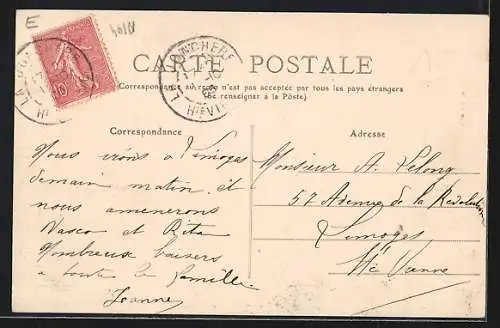 E
CARTE POSTALE
(Correspondance au recto n'est pas acceptée par tous les pays étrangers
(Se renseigner à la Poste).
Correspondance
Adresse
Nous irons a Limoges
demain matin et
nous amenerons
Vasco et Rita
Nombreux baisers
a toute la famille
Jeanne
Monsieur A. Lelong
57 Avenue de la Révolution
Limoges
Hte Vienne
10